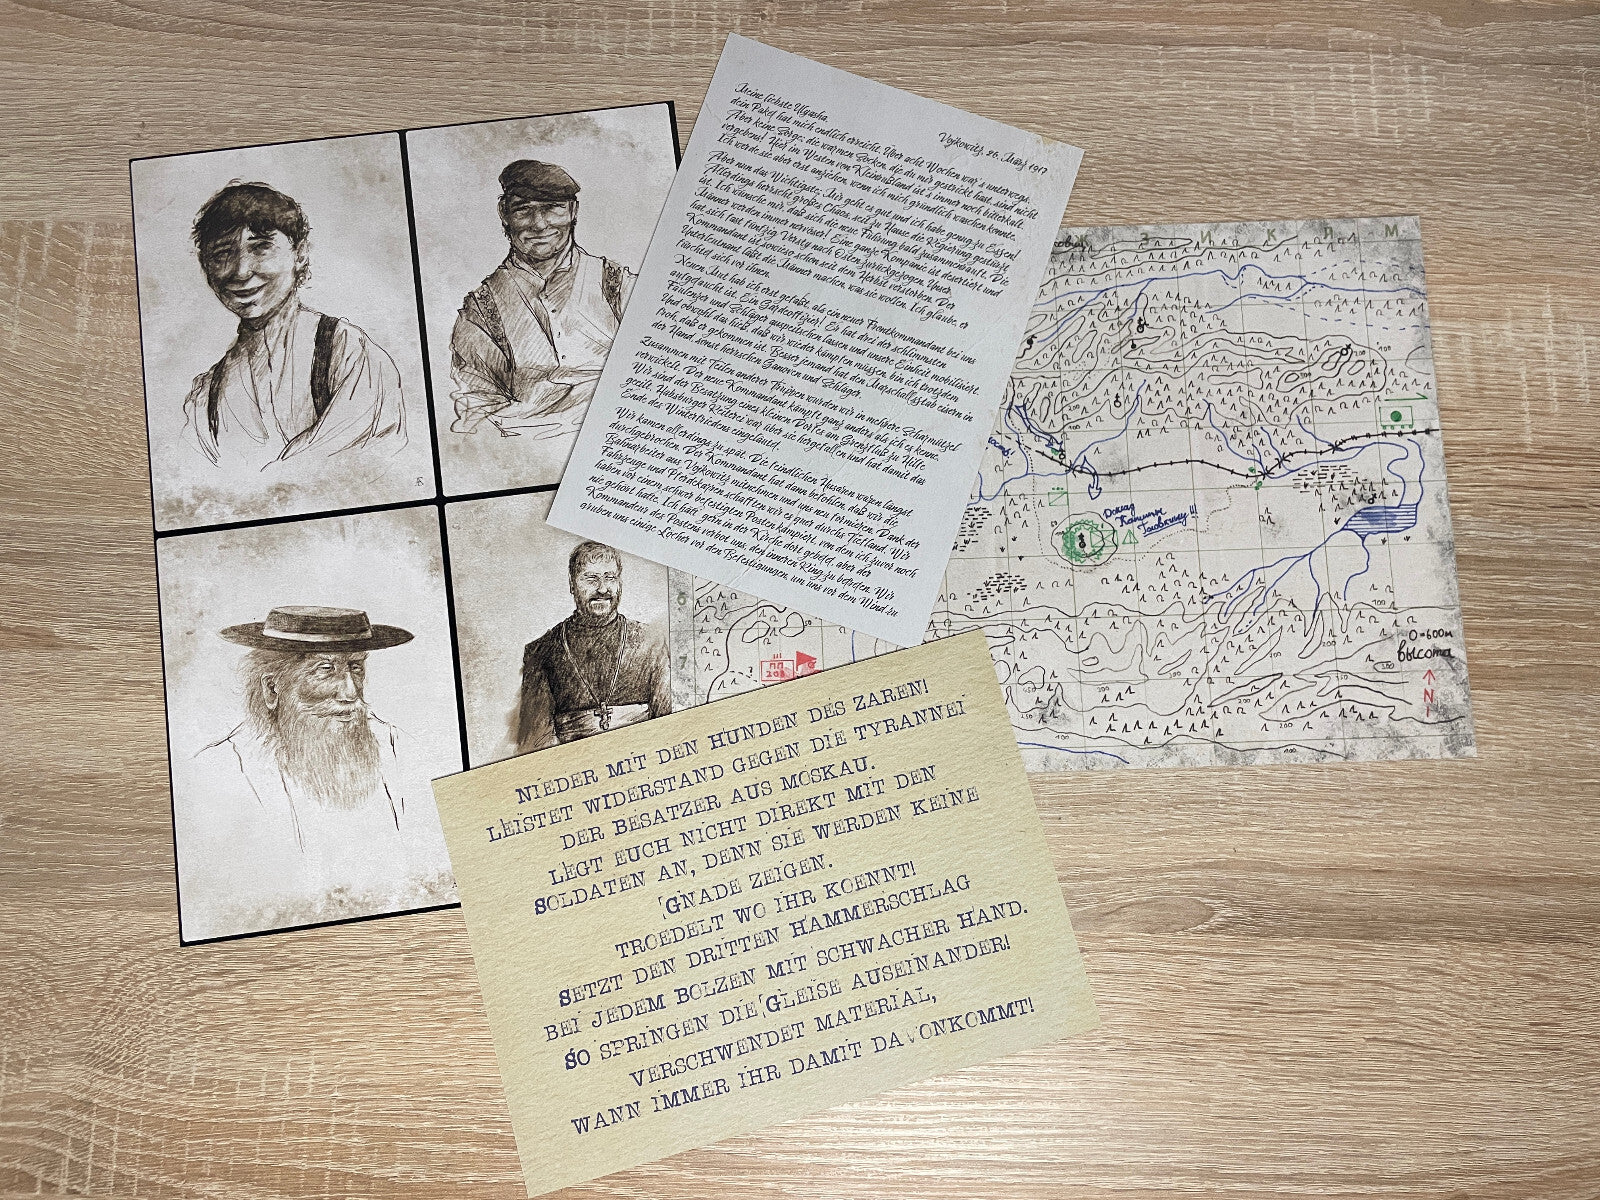 Meine liebste Ulyasha,
Vojkowitz, 26. März 1917
dein Paket hat mich endlich erreicht. Über acht Wochen war's unterwegs.
Aber keine Sorge: die warmen Socken, die du mir gestrickt hast, sind nicht
vergebens! Hier im Westen von Kleinrussland ist's immer noch bitterkalt.
Ich werde sie aber erst anziehen, wenn ich mich gründlich waschen konnte.
Aber nun das Wichtigste: Mir geht es gut und ich habe genug zu Essen!
Allerdings herrscht großes Chaos, seit zu Hause die Regierung gestürzt
ist. Ich wünsche mir, daß sich die neue Führung bald zusammenrauft. Die
Männer werden immer nervöser! Eine ganze Kompanie ist desertiert und
hat sich fast fünfzig Versty nach Osten zurückgezogen. Unser
Kommandant ist sowieso schon seit dem Herbst verstorben. Der
Unterleutnant läßt die Männer machen, was sie wollen. Ich glaube, er
fürchtet sich vor ihnen.
Neuen Mut hab ich erst gefaßt, als ein neuer Frontkommandant bei uns
aufgetaucht ist. Ein Gardeoffizier! Er hat drei der schlimmsten
Faulenzer und Schläger auspeitschen lassen und unsere Einheit mobilisiert.
Und obwohl das hieß, daß wir wieder kämpfen müssen, bin ich trotzdem
froh, daß er gekommen ist. Besser jemand hat den Marschallsstab eisern in
der Hand, sonst herrschen Ganoven und Schläger.
Zusammen mit Teilen anderer Truppen wurden wir in mehrere Scharmützel
verwickelt. Der neue Kommandant kämpft ganz anders als ich es kenne.
Wir sind der Besatzung eines kleinen Dorfes am Grenzfluß zu Hilfe
geeilt. Habsburger Reiterei war über sie hergefallen und hat damit das
Ende des Winterfriedens eingeläutet.
Wir kamen allerdings zu spät. Die feindlichen Husaren waren längst
durchgebrochen. Der Kommandant hat dann befohlen, daß wir die
Bahnarbeiter aus Vojkowitz mitnehmen und uns neu formieren. Dank der
Fahrzeuge und Pferdekarren schafften wir es quer durchs Tiefland. Wir
haben vor einem schwer befestigten Posten kampiert, von dem ich zuvor noch
nie gehört hatte. Ich hätt' gern in der Kirche dort gebetet, aber der
Kommandeur des Postens verbot uns, den inneren Ring zu betreten. Wir
gruben uns einige Löcher vor den Befestigungen, um uns vor dem Wind zu
З И К Л М
Доклад
Капитану
Головкину!!!
0=600м
высота
N
6
7
ПП
203
200
100
200
100
350
200
250
200
100
NIEDER MIT DEN HUNDEN DES ZAREN!
LEISTET WIDERSTAND GEGEN DIE TYRANNEI
DER BESATZER AUS MOSKAU.
LEGT EUCH NICHT DIREKT MIT DEN
SOLDATEN AN, DENN SIE WERDEN KEINE
GNADE ZEIGEN.
TROEDELT WO IHR KOENNT!
SETZT DEN DRITTEN HAMMERSCHLAG
BEI JEDEM BOLZEN MIT SCHWACHER HAND.
SO SPRINGEN DIE GLEISE AUSEINANDER!
VERSCHWENDET MATERIAL,
WANN IMMER IHR DAMIT DAVONKOMMT!